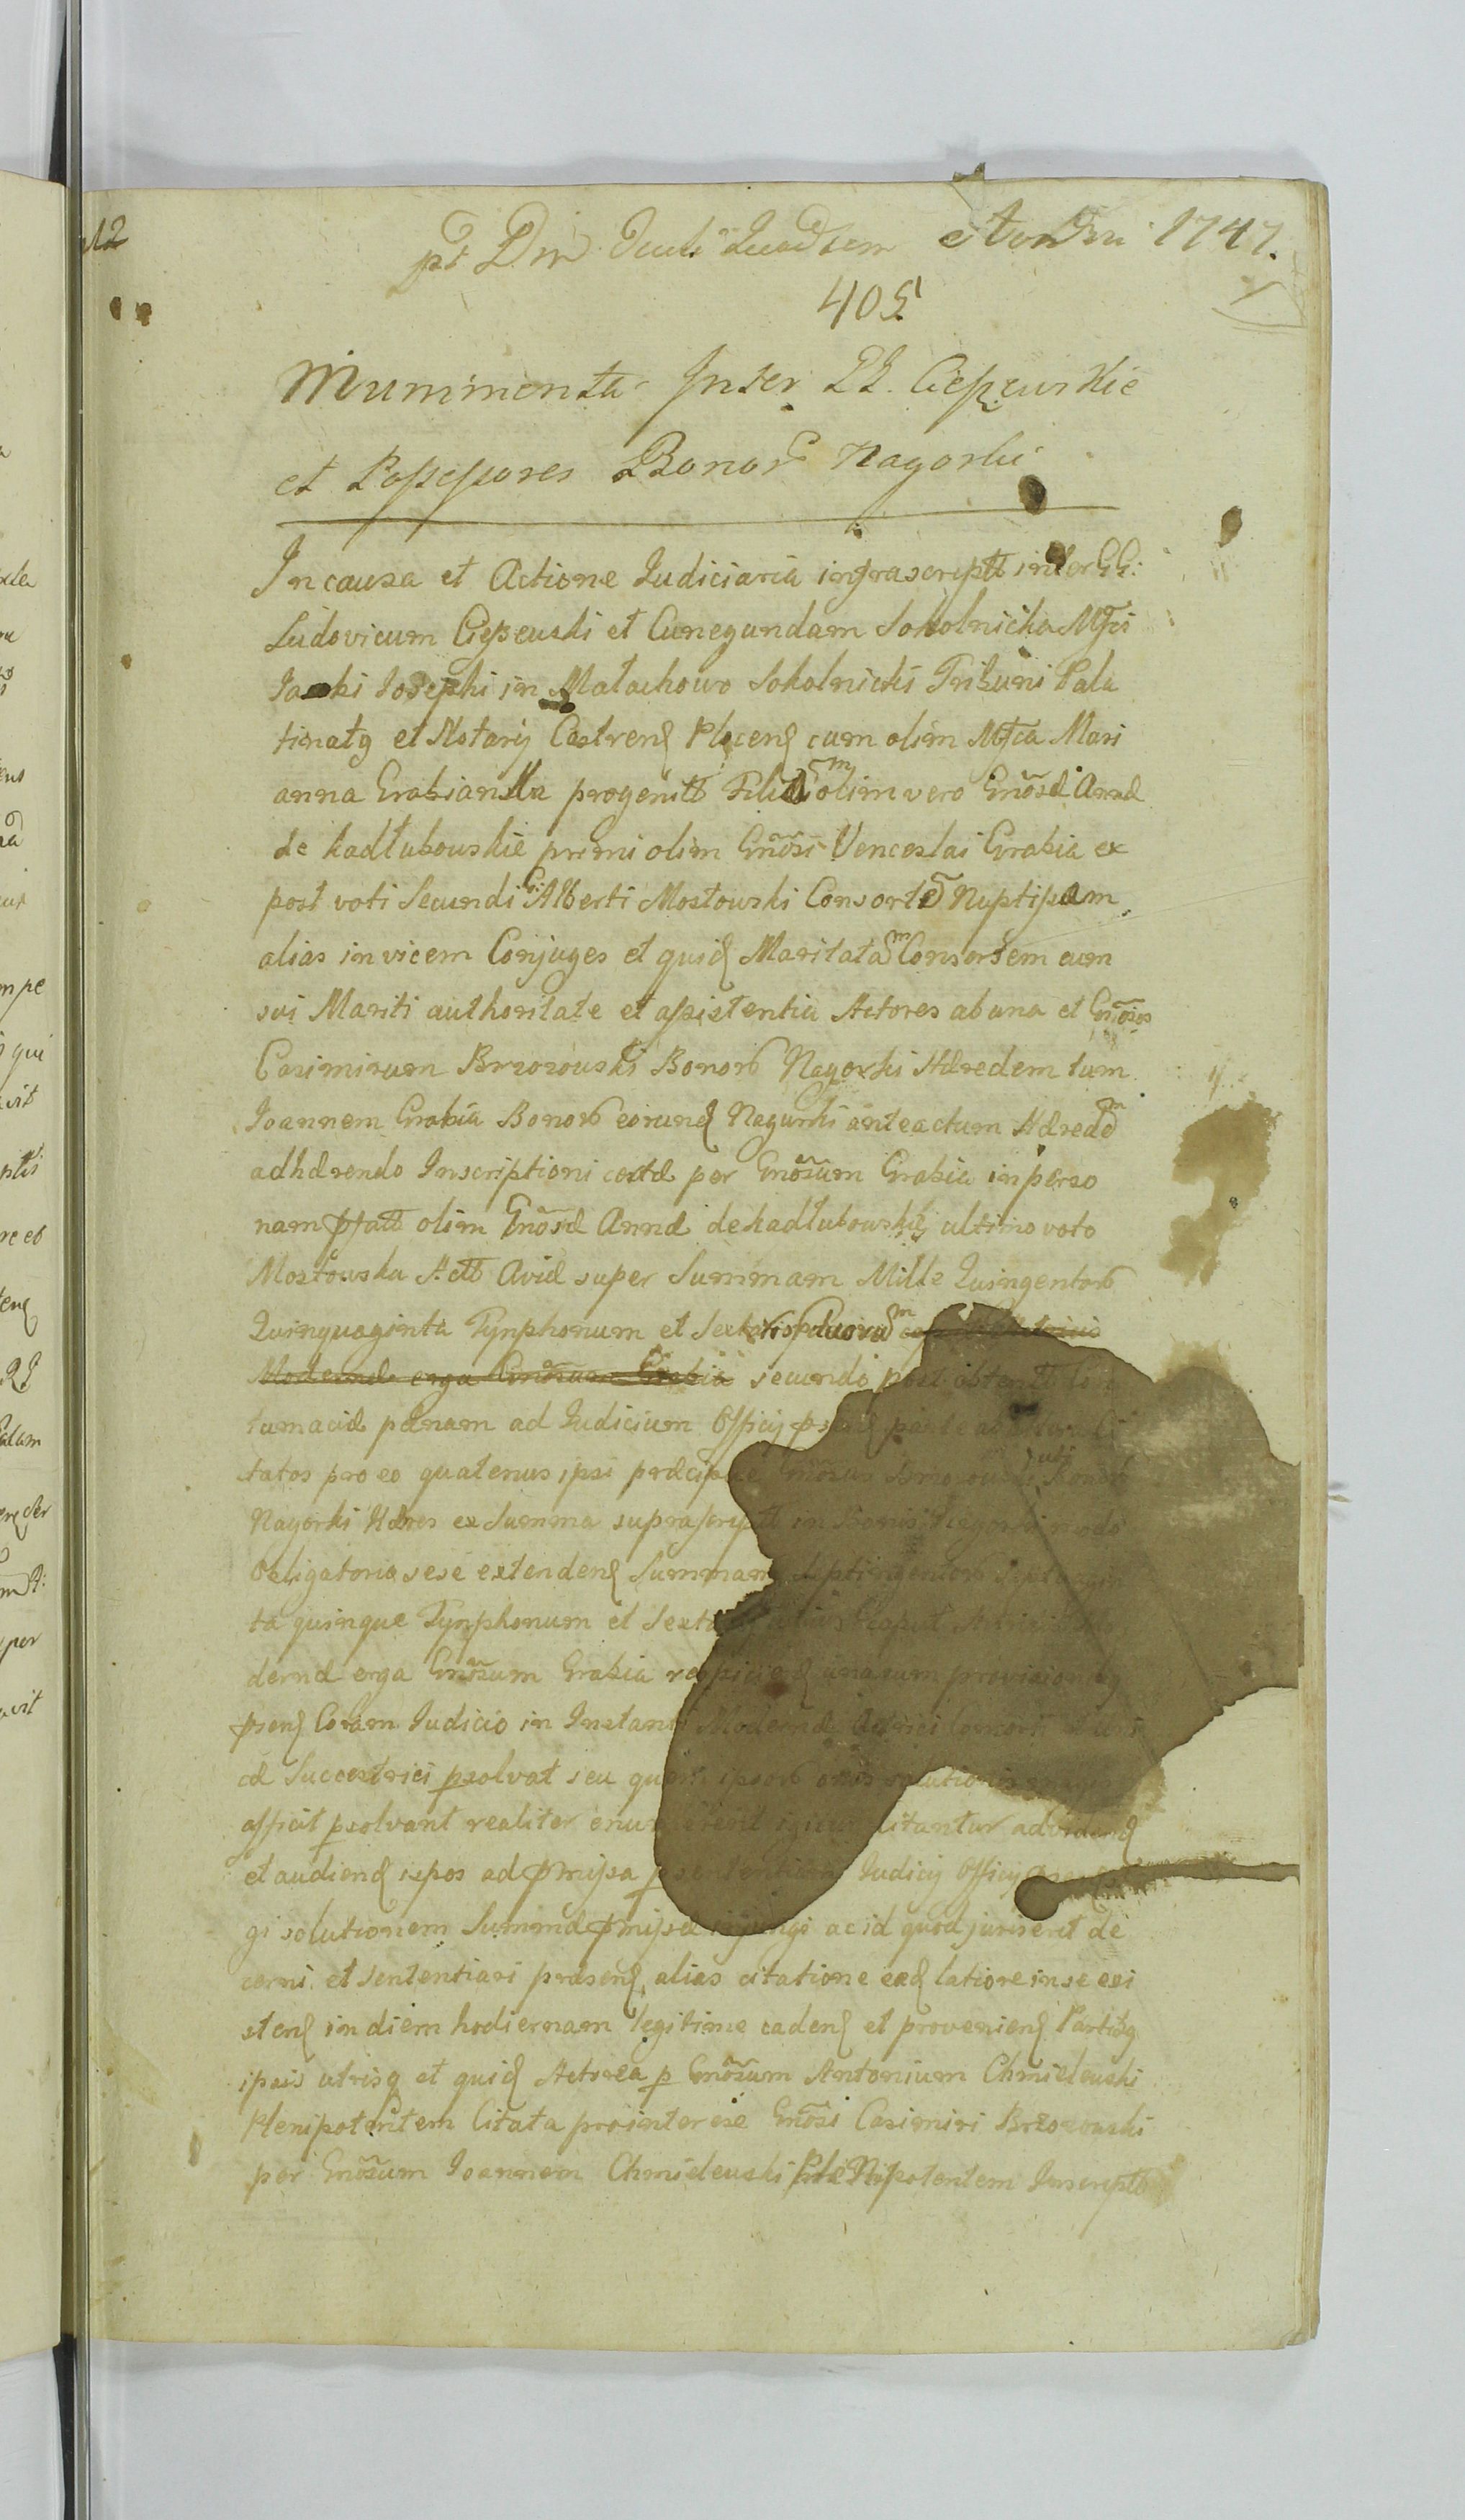 12
pt Dm Oculi Quadrem Anni 1747.
405
Munimenta Inter GG. Ciepeuskie
et Possessores Bonor Nagorki
In causa et Actione Iudiciaria infrascriptt inter GG:
Ludovicum Ciepeuski et Cunegundam Sokolnicka Mgfci
Iacobi Iosephi in Małachowo Sokolnicki Tribuni Pala
tinatg et Notarij Castren Plocen cum olim Mgfca Mari
anna Grabianka progenitt Filiam olim vero Gnosæ Annæ
de Kadłubouskie primi olim Gnosi Venceslai Grabia ex
post voti Secundi G. Alberti Mostouski Consorte Neptissam
alias invicem Conjuges et quid Maritatam Consortem cum
sui Mariti authoritate et assistentia Actores ab una et Gnosos
Casimirum Brzozouski Bonor Nagorki Hæredem tum
Ioannem Grabia Bonor eorund Nagurki anteactum Hæredem
adhærendo Inscriptioni certæ per Gnosum Grabia in perso
nam pfatt olim Gnosæ Annæ de Kadłubouskie ultimo voto
Mostouska Actt Aviæ super Summam Mille Quingentor
Quinquaginta Tynphonum et Sex duorum
Modernæ erga Gnosum Grabia secundo post obtentt con
tumaciæ pænam ad Iudicium Officij psen parte ab altera Ci
tatos pro eo quatenus ipsi præcipue Gnosus Brzozouski uti Bonor
Nagorki Hæres ex Summa suprascriptt in Bonis Nagorki modo
Obligatorio sese extenden Summam Septingentor Septuagin
ta quinque Tynphonum et Sexta Caput Actricis Mo
dernæ erga Gnosum Grabia respicien una cum provisionibg
psen Coram Iudicio in Instanti Modernæ Actrici Consorti
æ Succestrici psolvat seu quem ipsor onus solutionis magis
afficit psolvant realiter enumerent Citantur ad viden
et audien ispos ad pmissa p sententiam Iudicij Officij
gi solutionem Summæ pmissæ injungi ac id quod juris erit de
cerni et sententiari præsen, alias citatione ead latiore in se exi
sten in diem hodiernam legitime caden et provenien Partibg
ipsis utrisq et quid Actorea p Gnosum Antonium Chmieleuski
Plenipotentem Citata pro interese Gnosi Casimiri Brzozouski
per Gnosum Ioannem Chmieleuski Plenipotentem Inscriptt